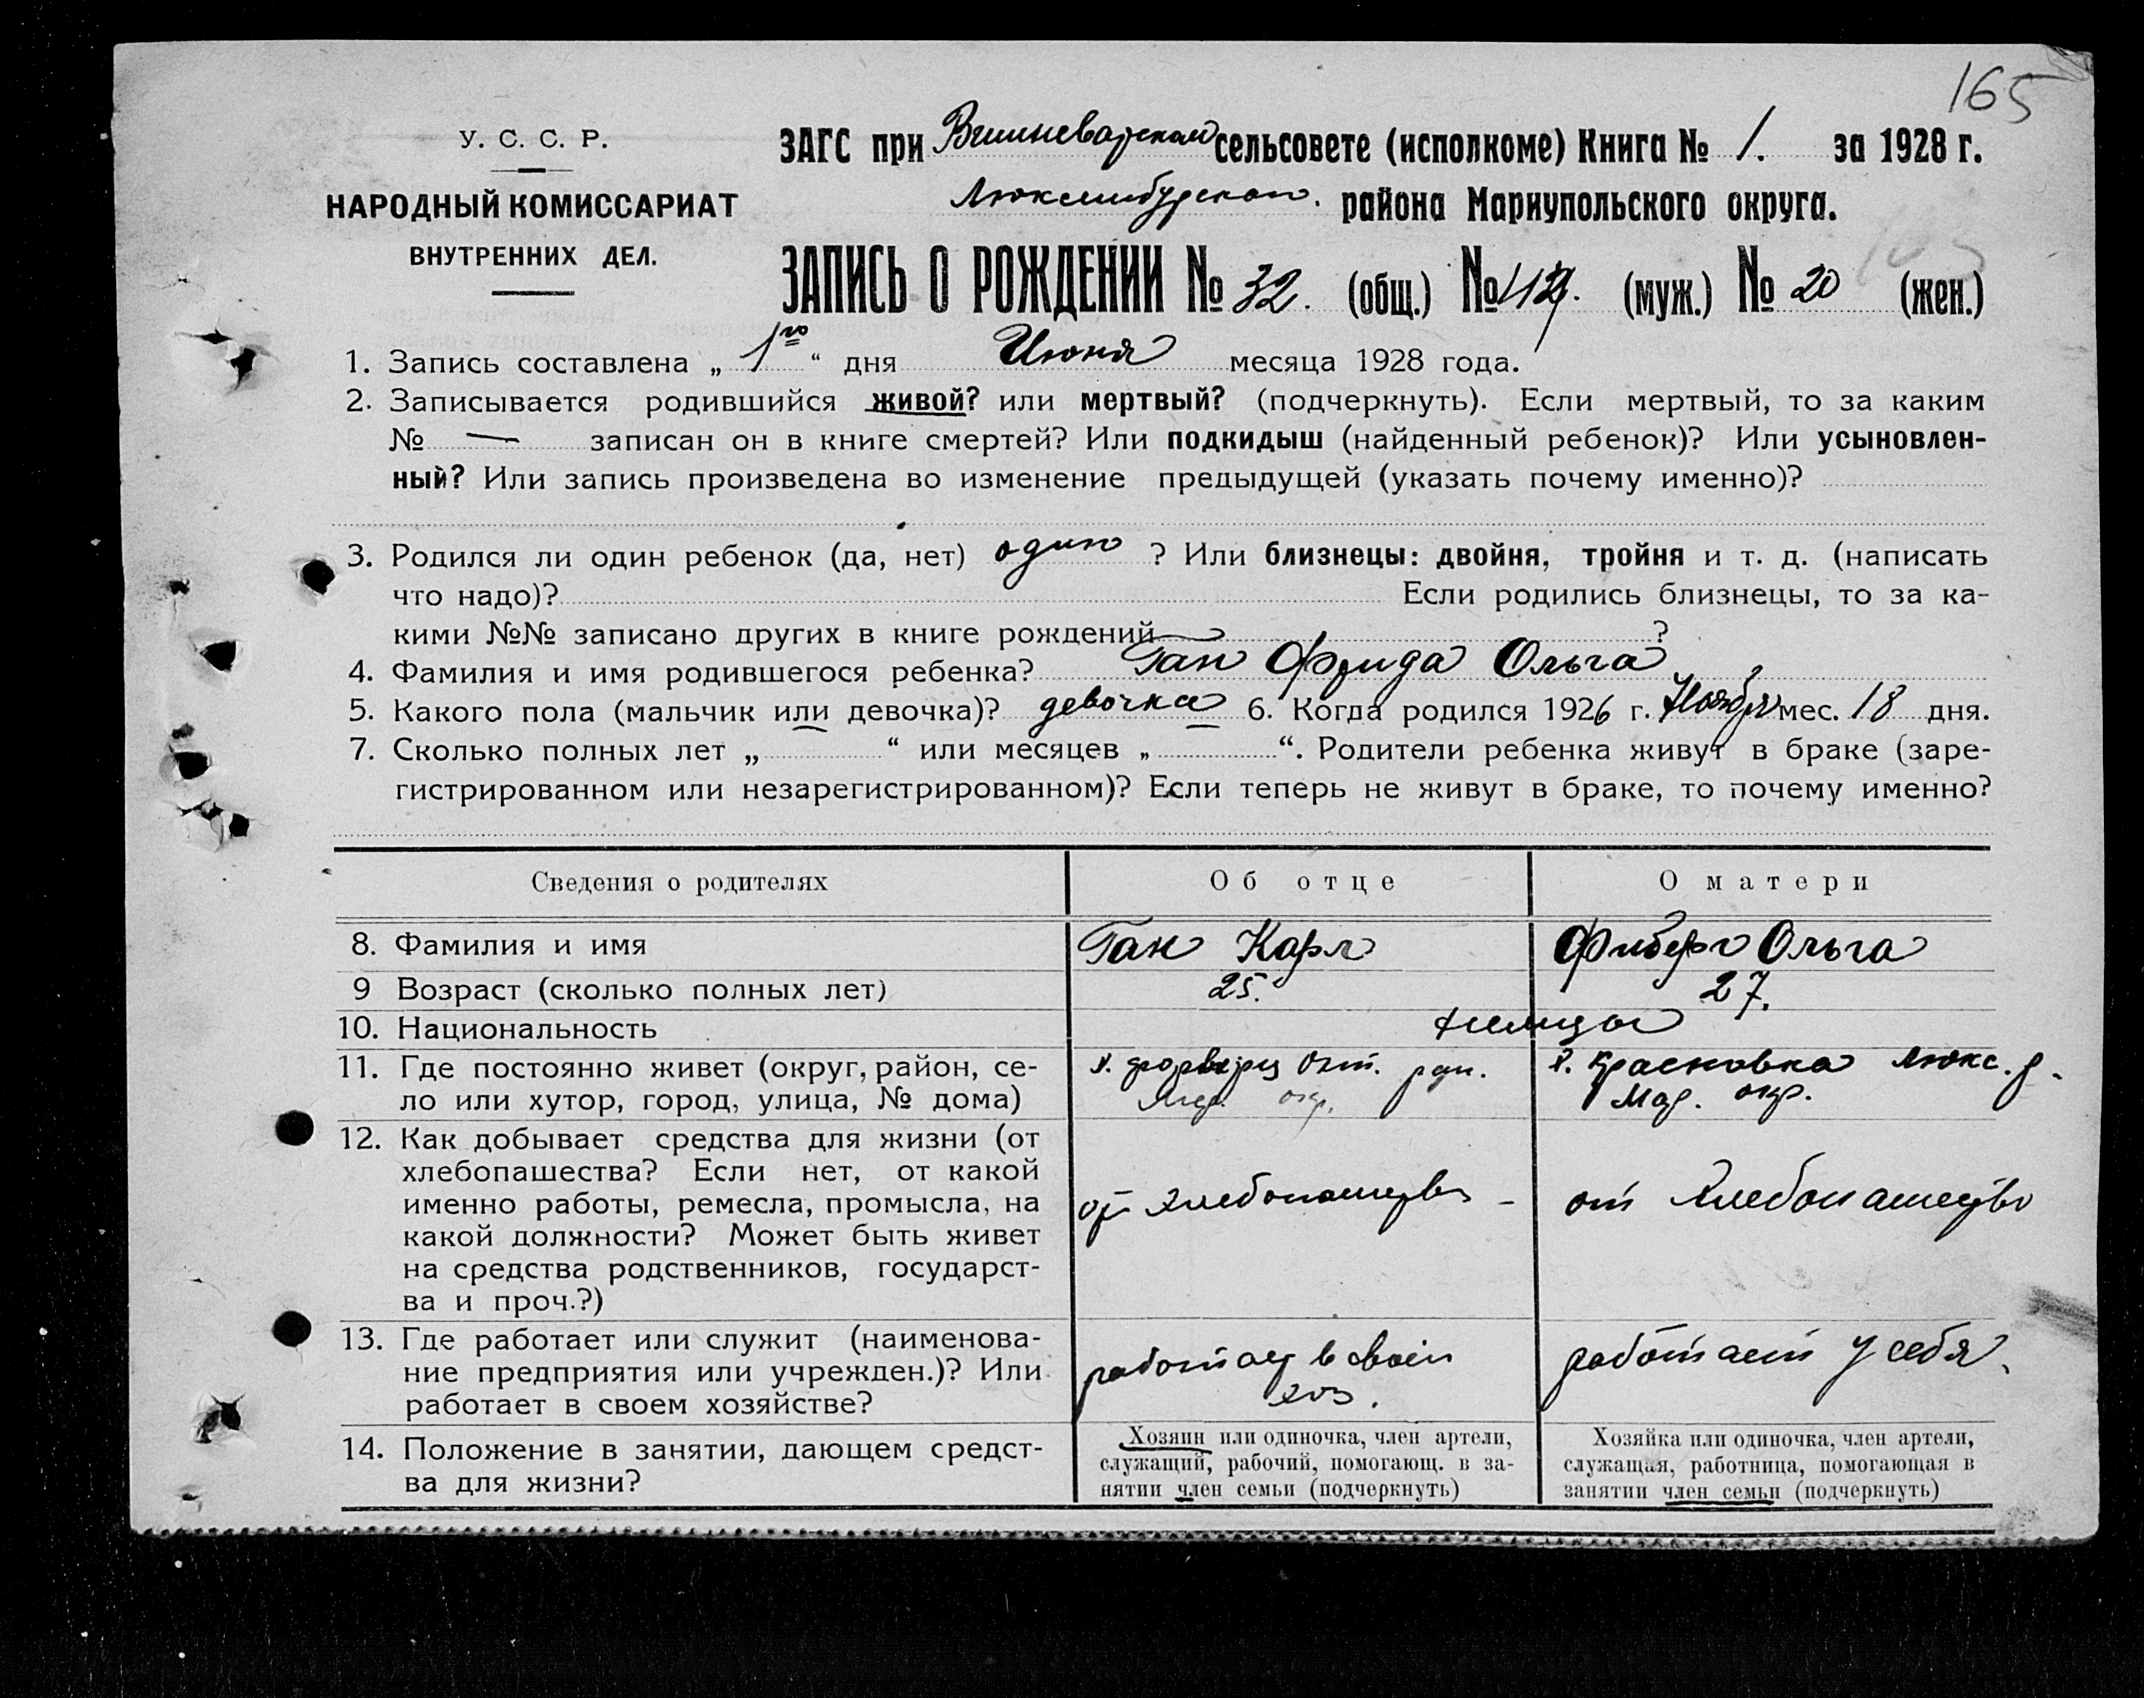 165
У. С. С. Р.
НАРОДНЫЙ КОМИССАРИАТ
ВНУТРЕННИХ ДЕЛ.
ЗАГС при сельсовете (исполкоме) Книга № 1. за 1928 г.
района Мариупольского округа.
ЗАПИСЬ О РОЖДЕНИИ № 32. (общ.) № (муж.) № 20 (жен.)
1. Запись составлена „ 1го “ дня Июня месяца 1928 года.
2. Записывается родившийся живой? или мертвый? (подчеркнуть). Если мертвый, то за каким
№ — записан он в книге смертей? Или подкидыш (найденный ребенок)? Или усыновлен-
ный? Или запись произведена во изменение предыдущей (указать почему именно)?
3. Родился ли один ребенок (да, нет) один ? Или близнецы: двойня, тройня и т. д. (написать
что надо)? Если родились близнецы, то за ка-
кими №№ записано других в книге рождений ?
4. Фамилия и имя родившегося ребенка? Ган Фрида Ольга
5. Какого пола (мальчик или девочка)? девочка 6. Когда родился 1926 г. Ноября мес. 18 дня.
7. Сколько полных лет „ “ или месяцев „ “. Родители ребенка живут в браке (заре-
гистрированном или незарегистрированном)? Если теперь не живут в браке, то почему именно?
Сведения о родителях Об отце О матери
8. Фамилия и имя Ган Карл Ольга
9 Возраст (сколько полных лет) 25. 27.
10. Национальность немцы
11. Где постоянно живет (округ, район, се-
ло или хутор, город, улица, № дома)
окр.
х. Красновка Люкс. р.
Мар. окр.
12. Как добывает средства для жизни (от
хлебопашества? Если нет, от какой
именно работы, ремесла, промысла, на
какой должности? Может быть живет
на средства родственников, государст-
ва и проч.?)
от хлебопашества -
от хлебопашество
13. Где работает или служит (наименова-
ние предприятия или учрежден.)? Или
работает в своем хозяйстве?
работает в своем
хоз.
работает у себя
14. Положение в занятии, дающем средст-
ва для жизни?
Хозяин или одиночка, член артели,
служащий, рабочий, помогающ. в за-
нятии член семьи (подчеркнуть)
Хозяйка или одиночка, член артели,
служащая, работница, помогающая в
занятии член семьи (подчеркнуть)